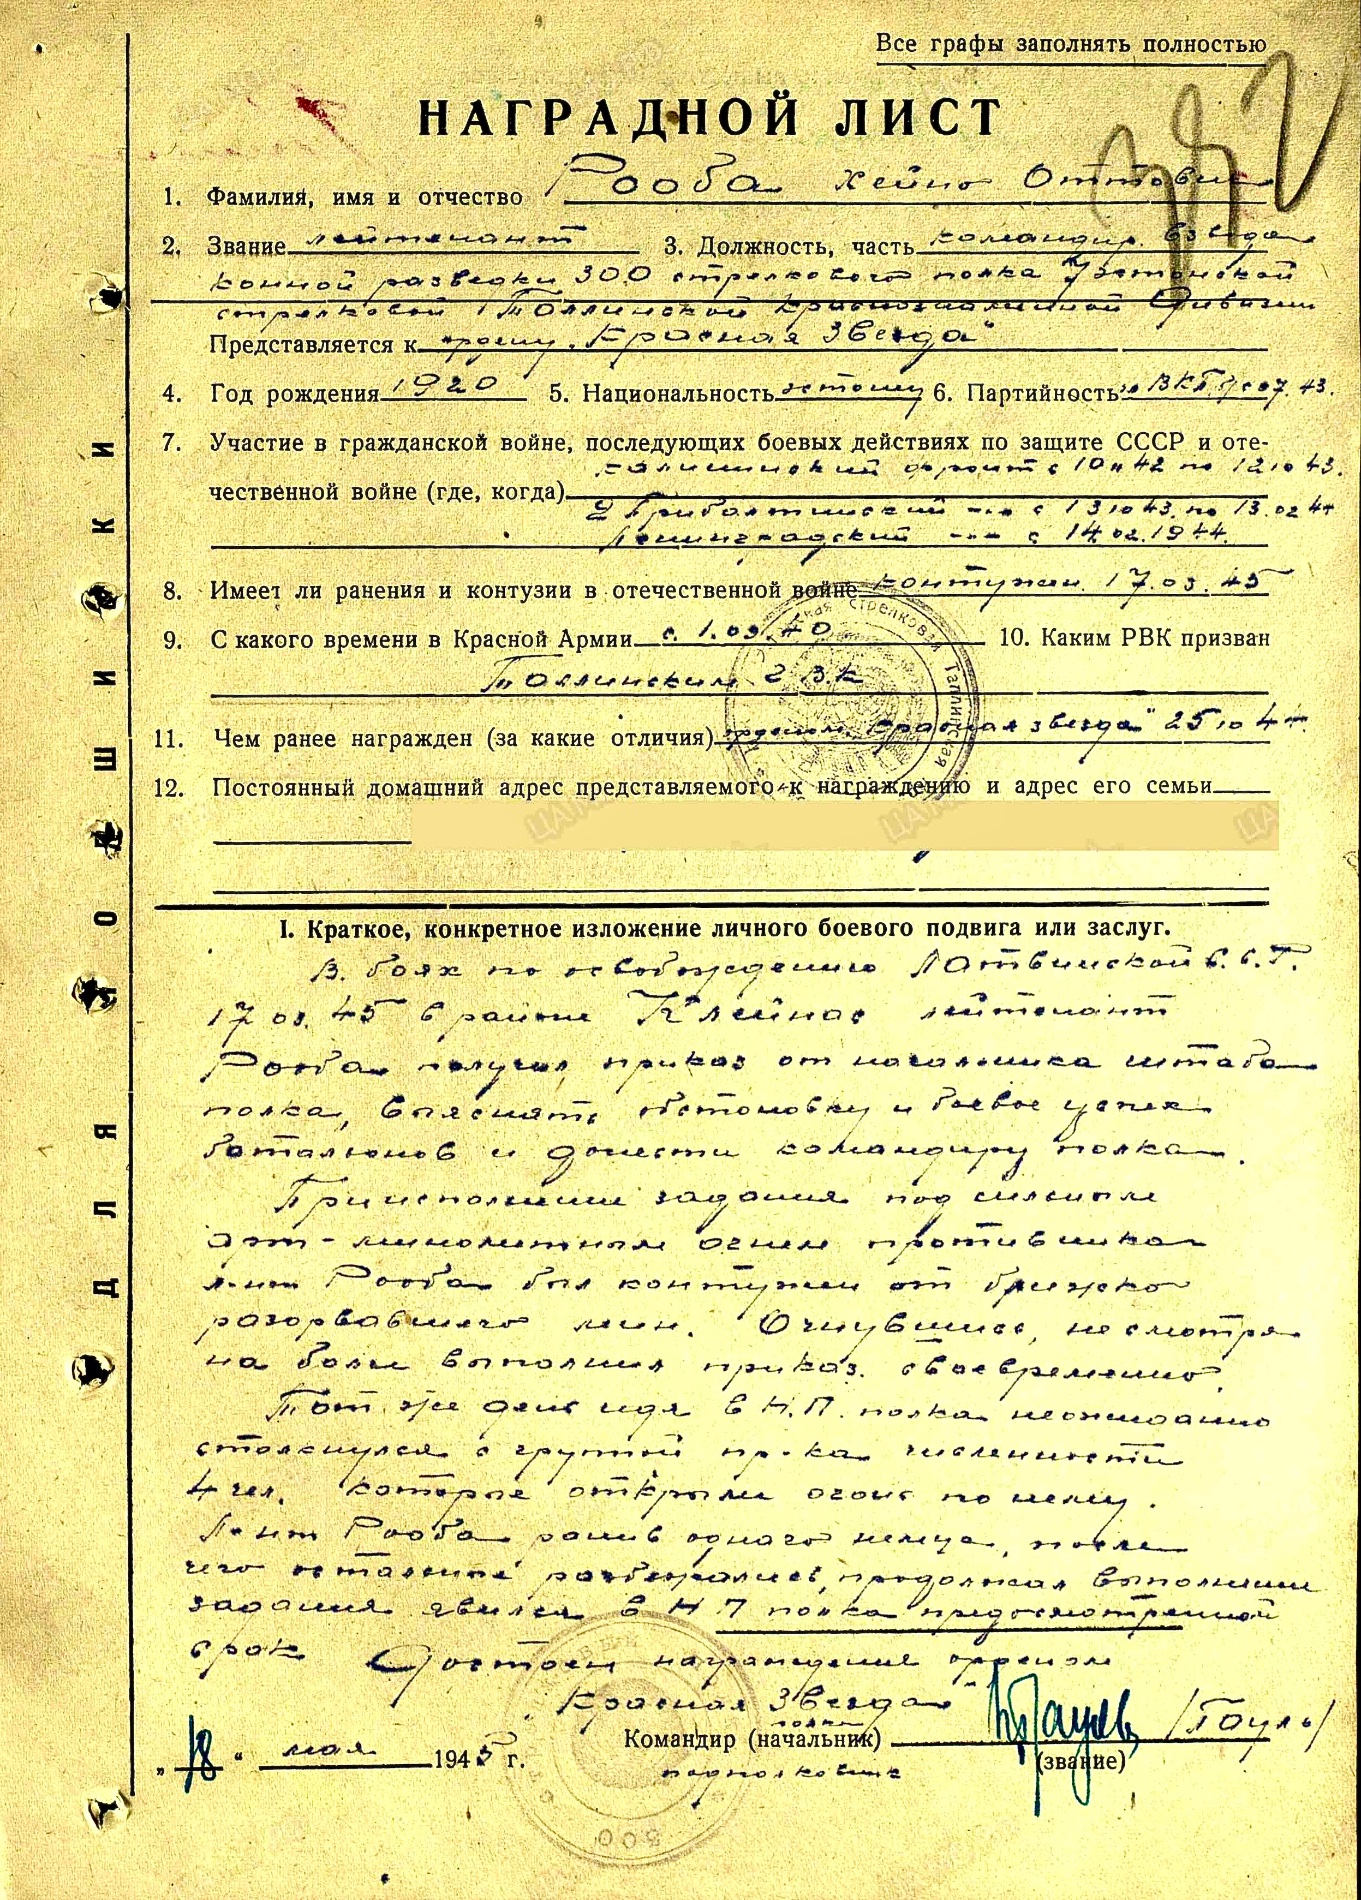 Все графы заполнять полностью
НАГРАДНОЙ ЛИСТ
1. Фамилия, имя и отчество Рооба Хейно Оттович
2. Звание лейтенант 3. Должность, часть командир взвода
конной разведки 300 стрелкового полка 7 эстонской
стрелковой Таллинской Краснознаменной дивизии
Представляется к ордену „Красная Звезда"
4. Год рождения 1920 5. Национальность эстонец 6. Партийность ВКП 07.43.
7. Участие в гражданской войне, последующих боевых действиях по защите СССР и оте-
Калининский фронт с 10 11 42 по 12 10 43.
чественной войне (где, когда)
2 Прибалтийский -"- с 13 10 43. по 13.02 44
Ленинградский -"- с 14.02.1944.
8. Имеет ли ранения и контузии в отечественной войне контужен 17.03.45
9. С какого времени в Красной Армии с 1.09.40 10. Каким РВК призван
Таллинским ГВК
11. Чем ранее награжден (за какие отличия) орденом „Красная звезда" 25 10 44.
12. Постоянный домашний адрес представляемого к награждению и адрес его семьи
I. Краткое, конкретное изложение личного боевого подвига или заслуг.
В боях по освобождению Латвийской С.С.Р.
17 03. 45 в районе Клейнас лейтенант
Рооба получил приказ от начальника штаба
полка, выяснять обстановку и боевое успех
баталионов и донести командиру полка.
При исполнении задания под сильным
арт-минометным огнем противника
л-нт Рооба был контужен от близко
разорвавшего мин. Очнувшись, несмотря
на боли выполнил приказ своевременно.
Тот же день идя в Н.П. полка неожиданно
столкнулся с группой пр-ка численности
4 чел. которые открыли огонь по нему.
Л-нт Рооба ранив одного немца, после
чего остальные разбежались, продолжал выполнении
задания явился в НП полка предосмотренной
срок Достоен награждения орденом
„Красная Звезда"
Командир (начальник) полка /Пауль/
подполковник (звание)
„18" мая 1945 г.
ДЛЯ ПОДШИВКИ
300